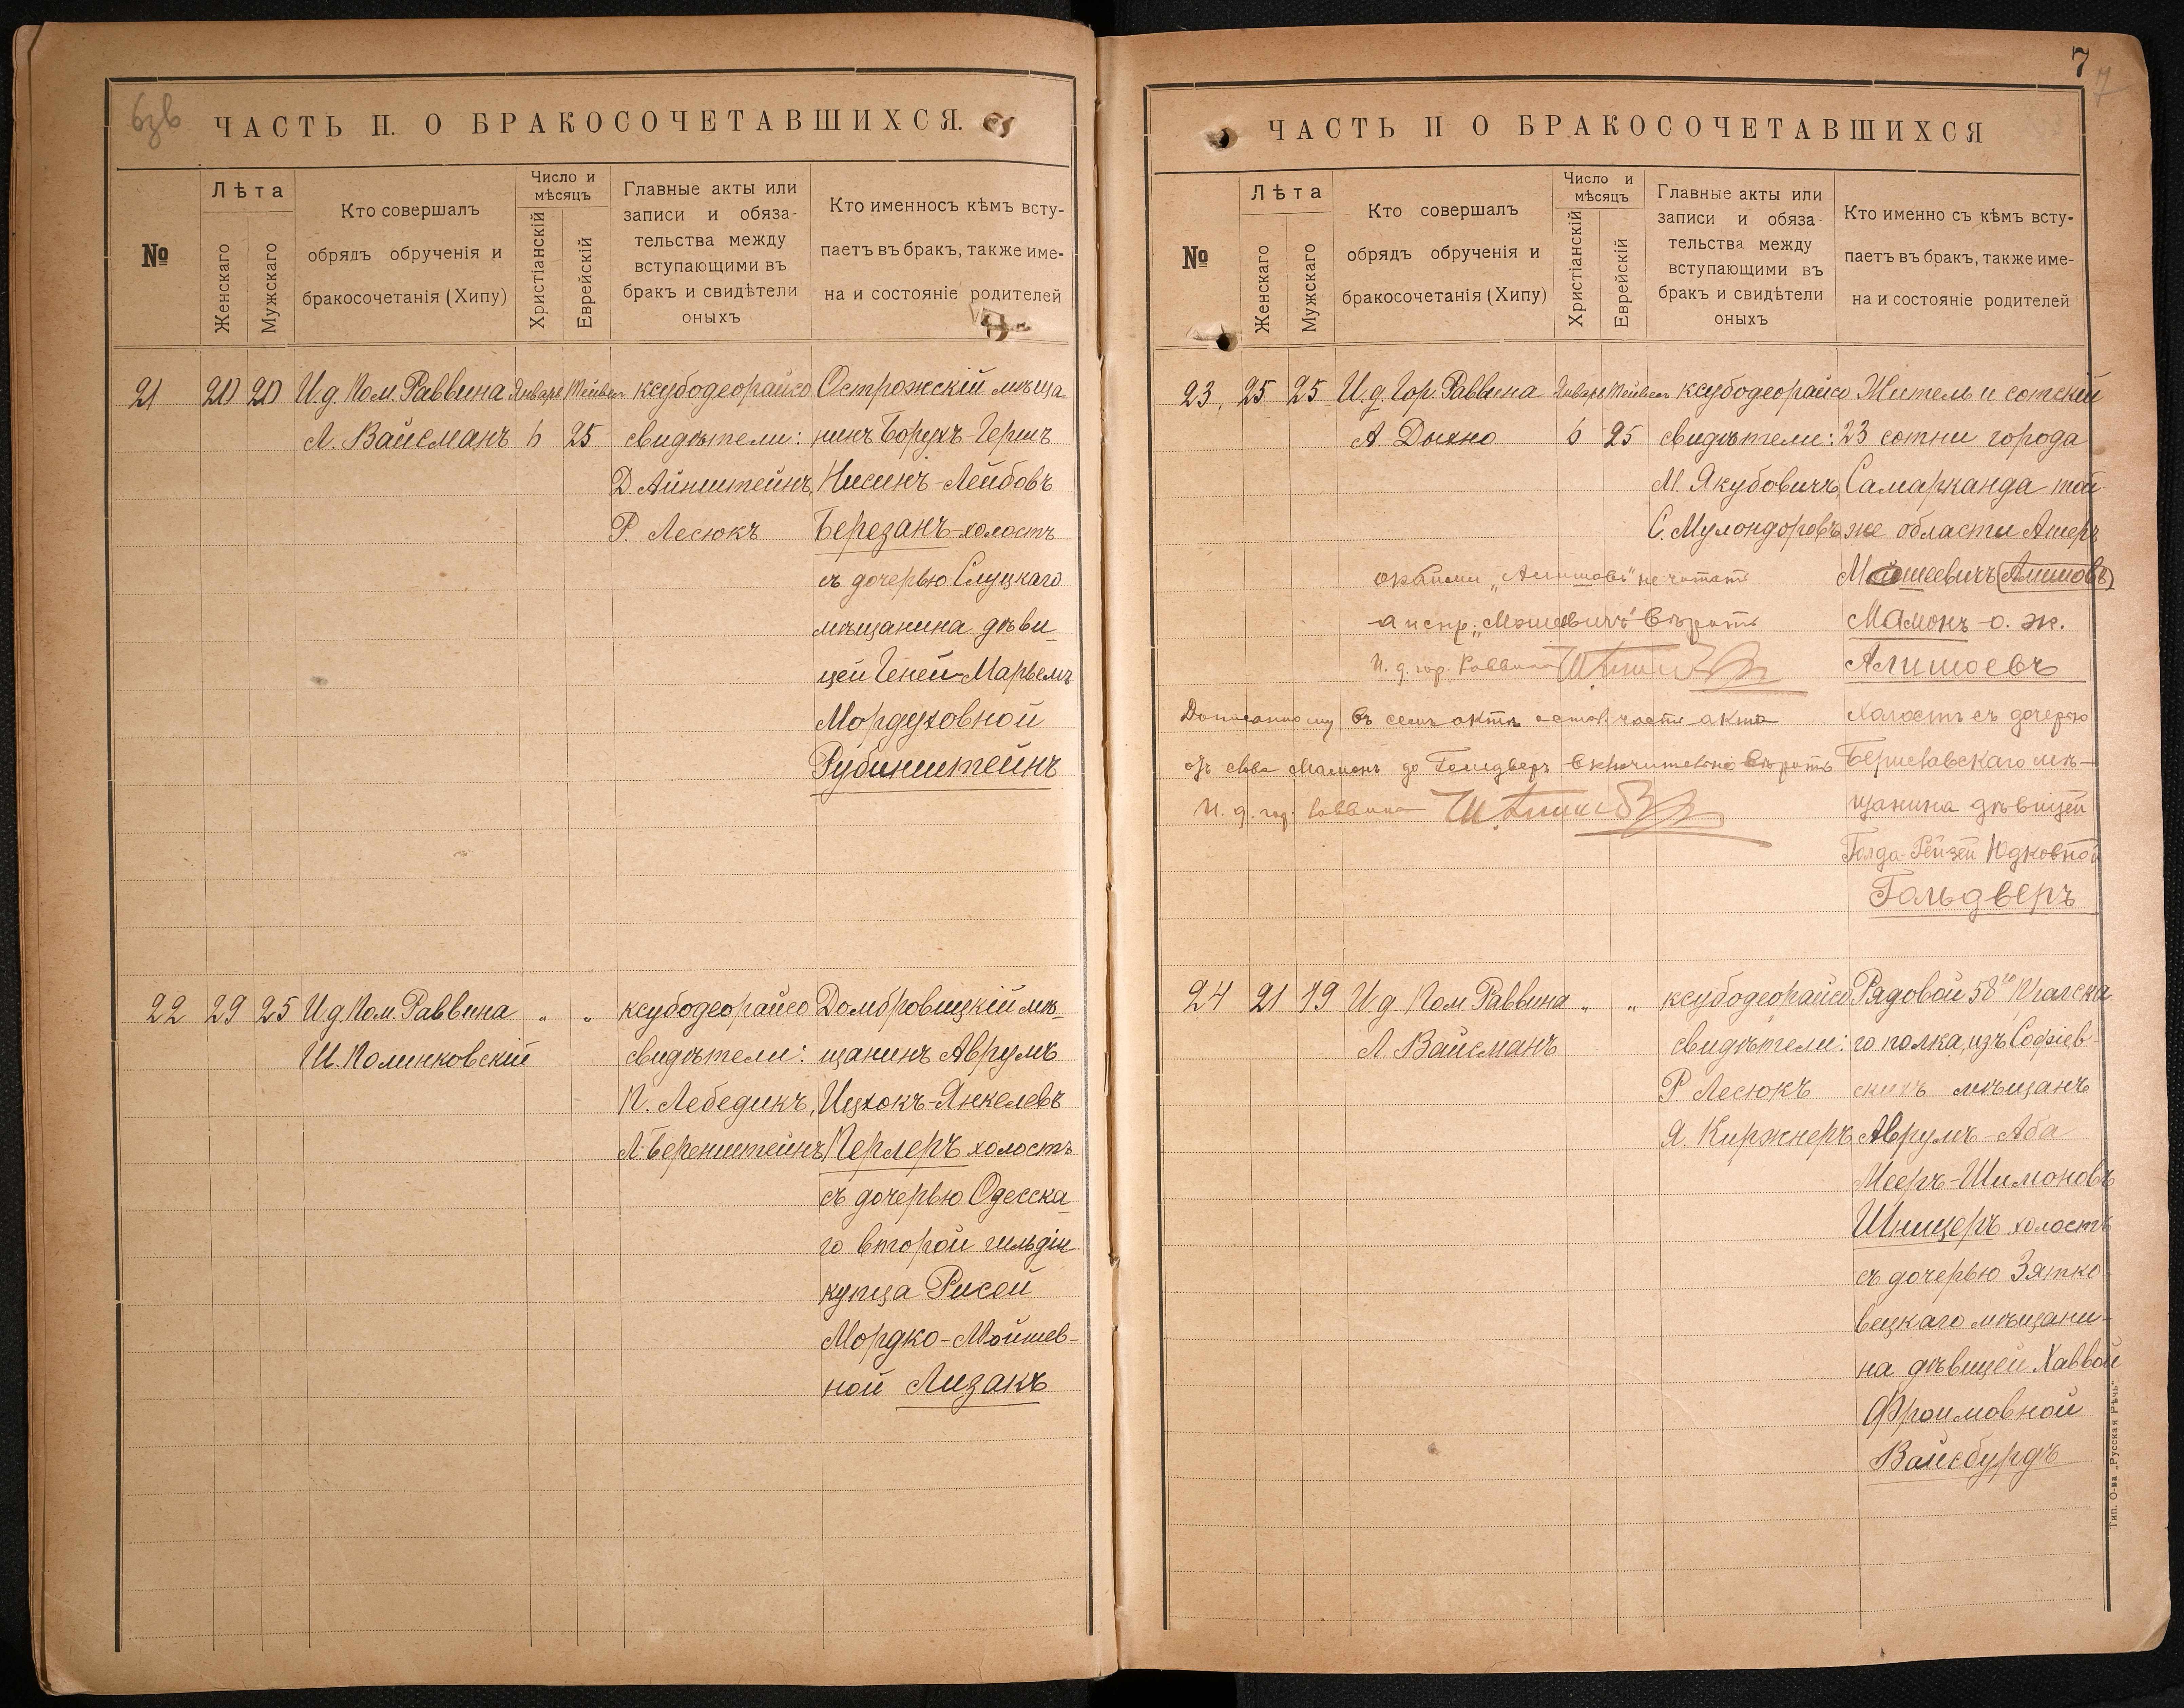 ЧАСТЬ II. О БРАКОСОЧЕТАВШИХСЯ.
№
Лѣта
Женскаго
Мужскаго
Кто совершалъ
обрядъ обрученія и
бракосочетанія (Хипу)
Число и
мѣсяцъ
Христіанскій
Еврейскій
Главные акты или
записи и обяза-
тельства между
вступающими въ
бракъ и свидѣтели
оныхъ
Кто именносъ кѣмъ всту-
паетъ въ бракъ, также име-
на и состояніе родителей
21 20 20 И.д. Пом. Раввина Январь Тейвес ксубодеорайсо Острожскій мѣща-
Л. Вайсманъ 6 25 свидѣтели: нинъ Борухъ-Гершъ
Д. Айнштейнъ, Нисинъ-Лейбовъ
Р. Лесюкъ Березанъ-холостъ
съ дочерью Слуцкаго
мѣщанина дѣви-
цей Геней-Марьемъ
Мордуховной
Рубинштейнъ
22 29 25 И.д Пом. Раввина " " ксубодеорайсо Домбровицкій мѣ-
Ш. Полинковскій свидѣтели: щанинъ Аврумъ
П. Лебединъ, Ицхокъ-Янкелевъ
Л. Беренштейнъ Перлеръ холостъ
съ дочерью Одесска-
го второй гильдіи
купца Рисей
Мордко-Мойшев-
ной Лизакъ
7
7
ЧАСТЬ II О БРАКОСОЧЕТАВШИХСЯ
№
Лѣта
Женскаго
Мужскаго
Кто совершалъ
обрядъ обрученія и
бракосочетанія (Хипу)
Число и
мѣсяцъ
Христіанскій
Еврейскій
Главные акты или
записи и обяза-
тельства между
вступающими въ
бракъ и свидѣтели
оныхъ
Кто именно съ кѣмъ всту-
паетъ въ бракъ, также име-
на и состояніе родителей
23, 25 25 И.д. Гор. Раввина Январь Тейвес ксубодеорайсо Житель и сотскій
А Дыхно 6 25 свидѣтели: 23 сотни города
М. Якубовичъ, Самарканда той
С. Мулондоровъ же области Ашеръ
не читать Мошеевичъ (Алишовъ)
а испр. „Мошевичъ" вѣрить Мамонъ о. ж.
И. д. гор. Раввина Алишоевъ
Дописанному въ семъ актѣ остав. части акта холостъ съ дочерью
отъ слова Мамонъ до Гольдверъ включительно вѣрить Бершавскаго мѣ-
И. д. гор. Раввина щанина дѣвицей
Голда-Рейзей Юдковной
Гольдверъ
24 21 19 И.д. Пом Раввина " " ксубодеорайсо Рядовой 58го Прагска
Л. Вайсманъ свидѣтели: го полка, изъ Софіев-
Р Лесюкъ скихъ мѣщанъ
Я. Киржнеръ Аврумъ-Аба
Мееръ-Шимоновъ
Шницеръ холостъ
съ дочерью Зятко-
вецкаго мѣщани-
на дѣвицей Хаввой
Фроимовной
Вайсбурдъ
Тип. О-ва „Русская Рѣчь".